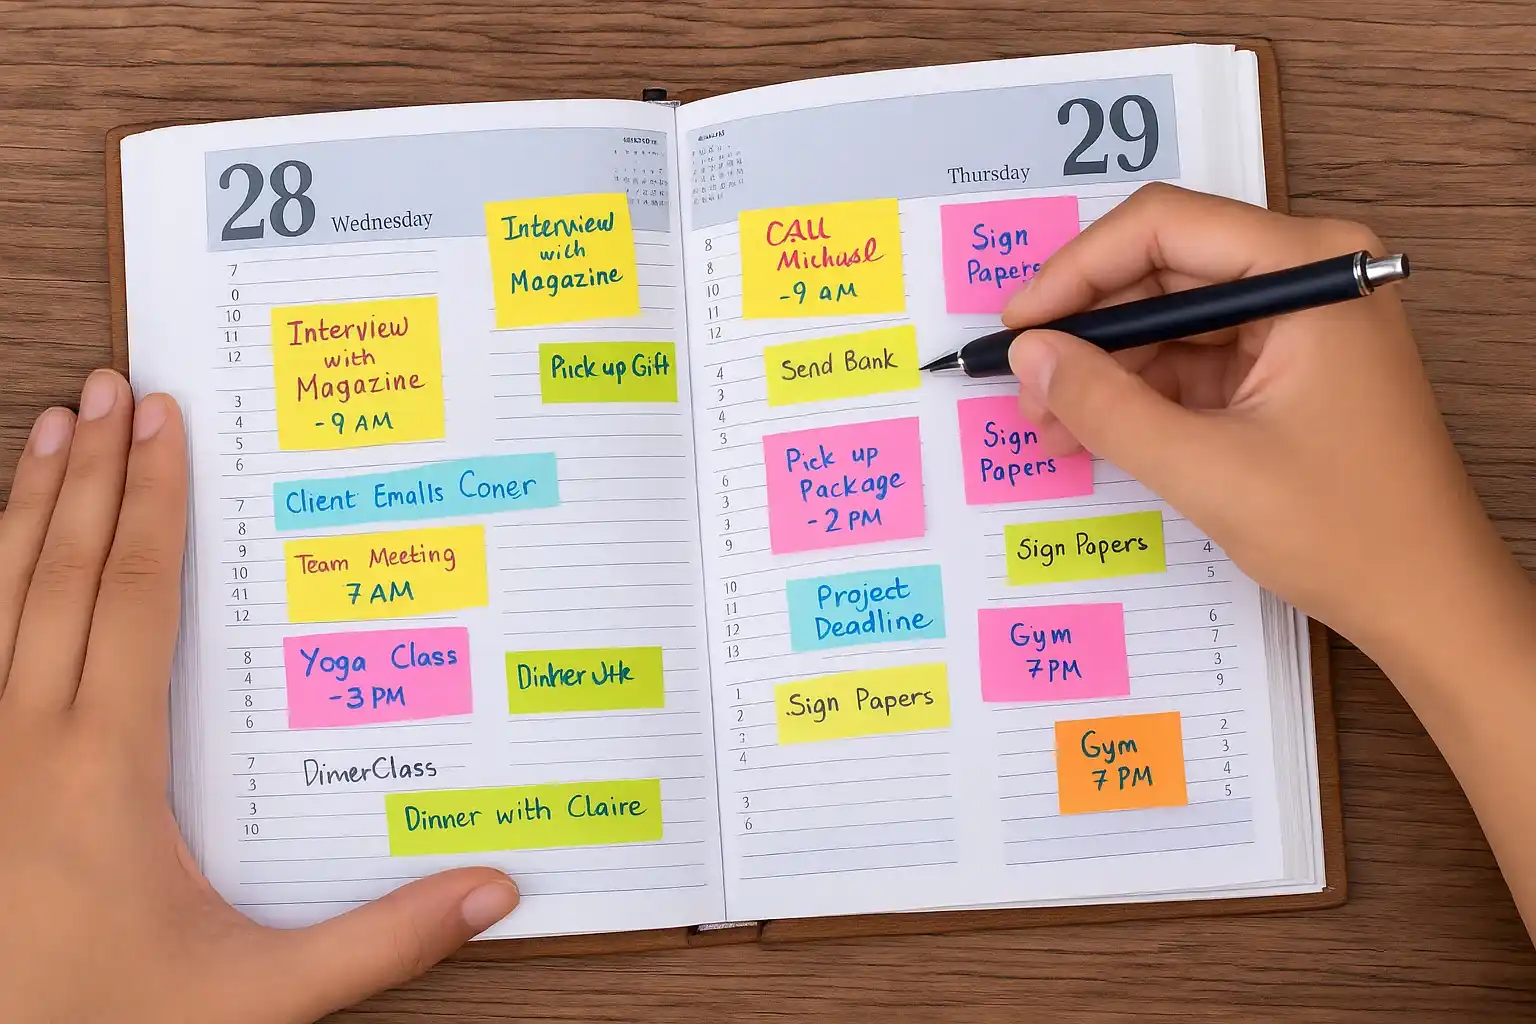 28 Wednesday
Interview
with
Magazine
7
0
10
11
12
3
4
5
6
7
8
9
10
41
12
8
4
8
6
7
3
3
10
Interview
with
Magazine
-9 AM
Piick up Gift
Client Emalls Coner
Team Meeting
7 AM
Yoga Class
-3 PM
DimerClass
Dinner with Claire
Thursday 29
8
8
10
11
12
4
3
3
6
3
3
9
10
11
12
13
1
2
3
4
3
6
CALL
Michael
-9 AM
Sign
Papers
Send Bank
Pick up
Package
-2 PM
Sign
Papers
Sign Papers
Project
Deadline
Gym
7 PM
Sign Papers
Gym
7 PM
4
5
6
7
3
9
2
3
4
5